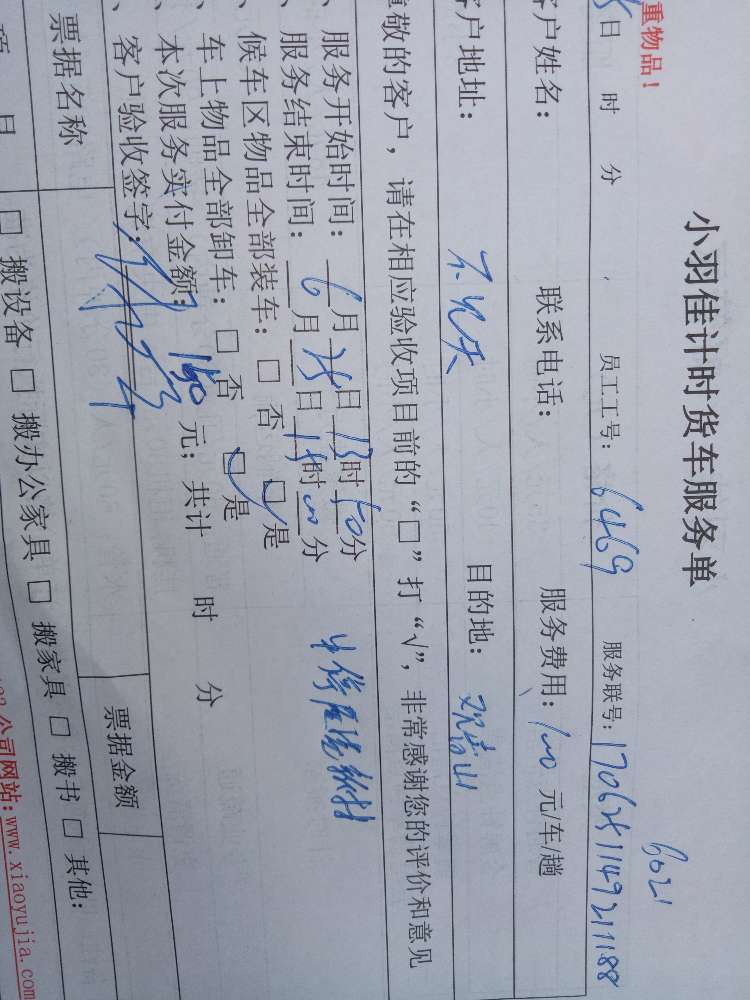 重物品！
小羽佳计时货车服务单
6021
日 时 分 员工工号：6469 服务联号：170625114921188
客户姓名： 联系电话： 服务费用：100元/车/趟
客户地址： 目的地：观音山
尊敬的客户，请在相应验收项目前的“□”打“√”，非常感谢您的评价和意见
、服务开始时间：6月25日13时50分
、服务结束时间：6月25日15时00分
候车区物品全部装车：□ 否 □是
、车上物品全部卸车：□ 否 □是
、本次服务实付金额：150元；共计 时 分
、客户验收签字：
票据名称 票据金额
项 目 □ 搬设备 □ 搬办公家具 □ 搬家具 □ 搬书 □ 其他：
公司网站：www.xiaoyujia.com